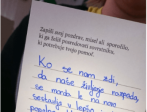 Zapiši svoj pozdrav, misel ali sporočilo,
ki ga želiš posredovati sovrstniku,
ki potrebuje tvojo pomoč.
Ko se nam zdi,
da naše življenje razpada,
se morda le na novo
sestavlja v lepšo